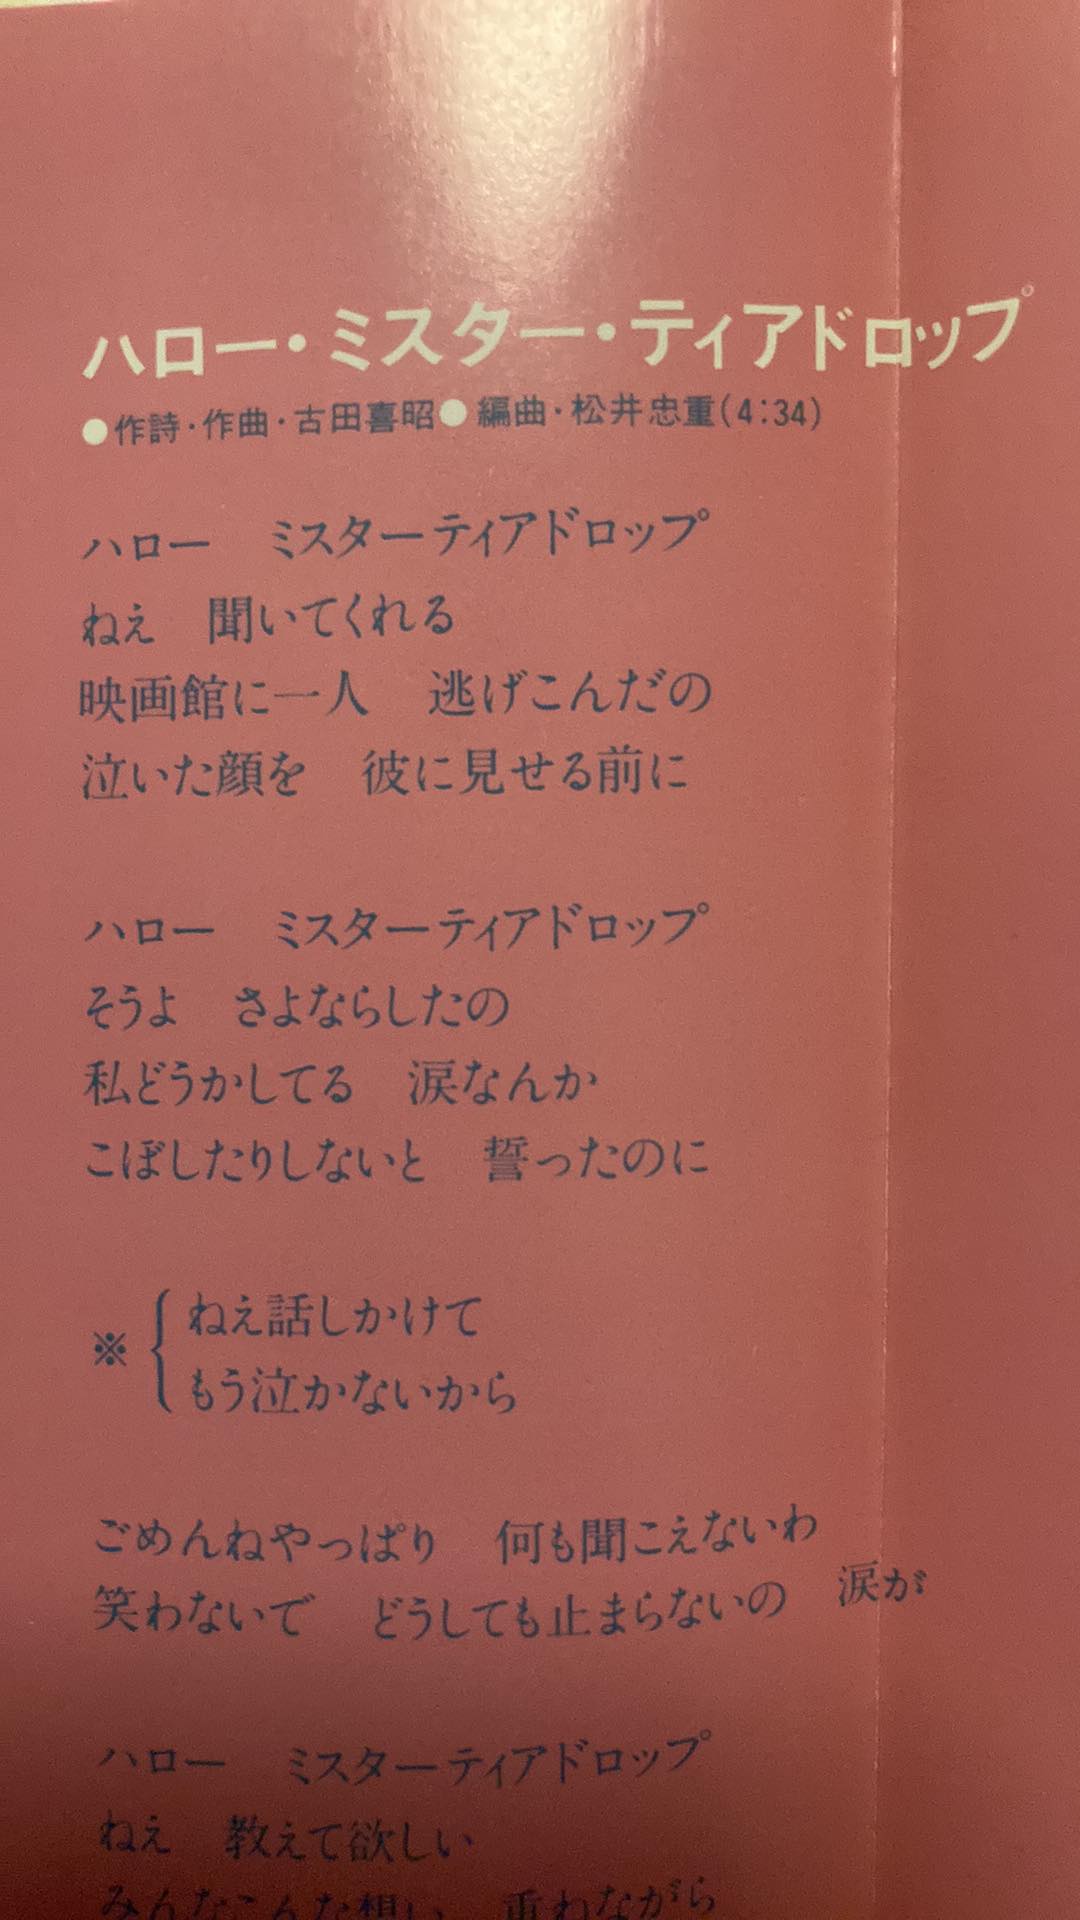 ハロー・ミスター・ティアドロップ
●作詩・作曲・古田喜昭●編曲・松井忠重(4:34)
ハロー　ミスターティアドロップ
ねえ　聞いてくれる
映画館に一人　逃げこんだの
泣いた顔を　彼に見せる前に
ハロー　ミスターティアドロップ
そうよ　さよならしたの
私どうかしてる　涙なんか
こぼしたりしないと　誓ったのに
※ ねえ話しかけて
もう泣かないから
ごめんねやっぱり　何も聞こえないわ
笑わないで　どうしても止まらないの　涙が
ハロー　ミスターティアドロップ
ねえ　教えて欲しい
みんなこんな想い　重ねながら